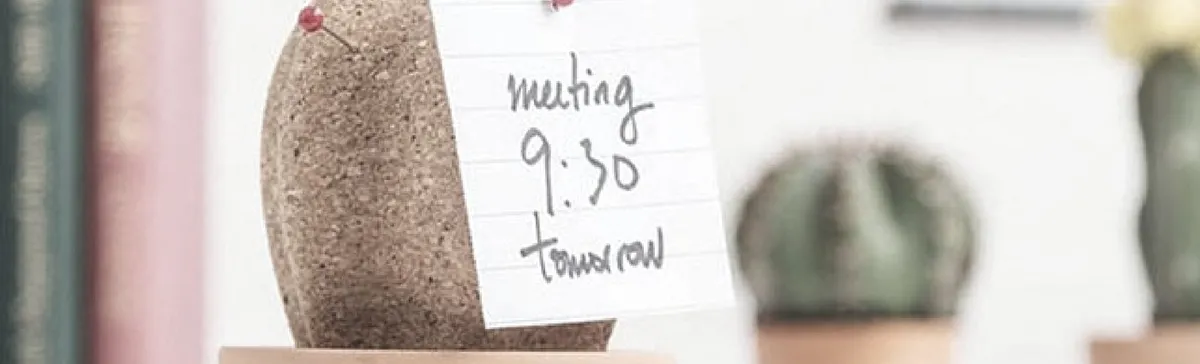 meeting
9:30
tomorrow